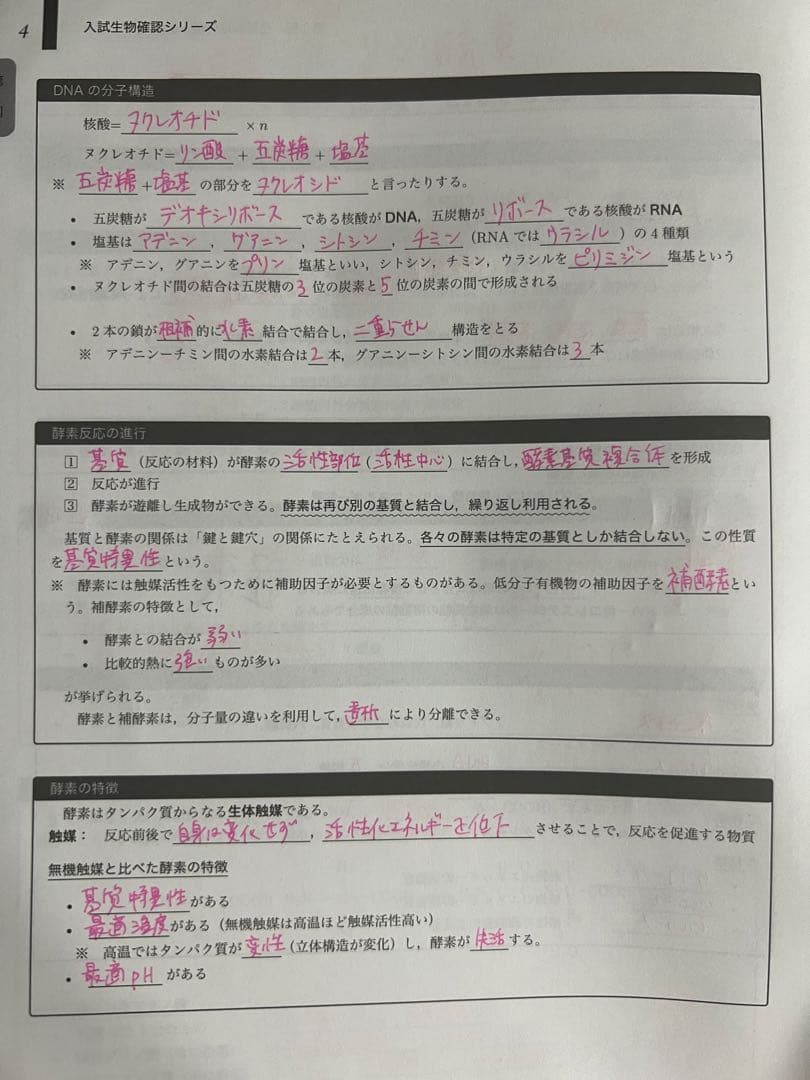 4
入試生物確認シリーズ
DNA の分子構造
核酸=ヌクレオチド × n
ヌクレオチド=リン酸 + 五炭糖 + 塩基
※ 五炭糖 + 塩基 の部分を ヌクレオシド と言ったりする。
• 五炭糖が デオキシリボース である核酸が DNA,五炭糖が リボース である核酸が RNA
• 塩基は アデニン , グアニン , シトシン , チミン (RNA では ウラシル ) の 4 種類
※ アデニン,グアニンを プリン 塩基といい,シトシン,チミン,ウラシルを ピリミジン 塩基という
• ヌクレオチド間の結合は五炭糖の 3 位の炭素と 5 位の炭素の間で形成される
• 2 本の鎖が 相補 的に 水素 結合で結合し, 二重らせん 構造をとる
※ アデニンーチミン間の水素結合は 2 本,グアニンーシトシン間の水素結合は 3 本
酵素反応の進行
1 基質 (反応の材料) が酵素の 活性部位 ( 活性中心 ) に結合し, 酵素基質複合体 を形成
2 反応が進行
3 酵素が遊離し生成物ができる。酵素は再び別の基質と結合し,繰り返し利用される。
基質と酵素の関係は「鍵と鍵穴」の関係にたとえられる。各々の酵素は特定の基質としか結合しない。この性質
を 基質特異性 という。
※ 酵素には触媒活性をもつために補助因子が必要とするものがある。低分子有機物の補助因子を 補酵素 とい
う。補酵素の特徴として,
• 酵素との結合が 弱い
• 比較的熱に 強い ものが多い
が挙げられる。
酵素と補酵素は,分子量の違いを利用して, 透析 により分離できる。
酵素の特徴
酵素はタンパク質からなる生体触媒である。
触媒: 反応前後で 自身は変化せず , 活性化エネルギーを低下 させることで,反応を促進する物質
無機触媒と比べた酵素の特徴
• 基質特異性 がある
• 最適温度 がある (無機触媒は高温ほど触媒活性高い)
※ 高温ではタンパク質が 変性 (立体構造が変化) し,酵素が 失活 する。
• 最適pH がある